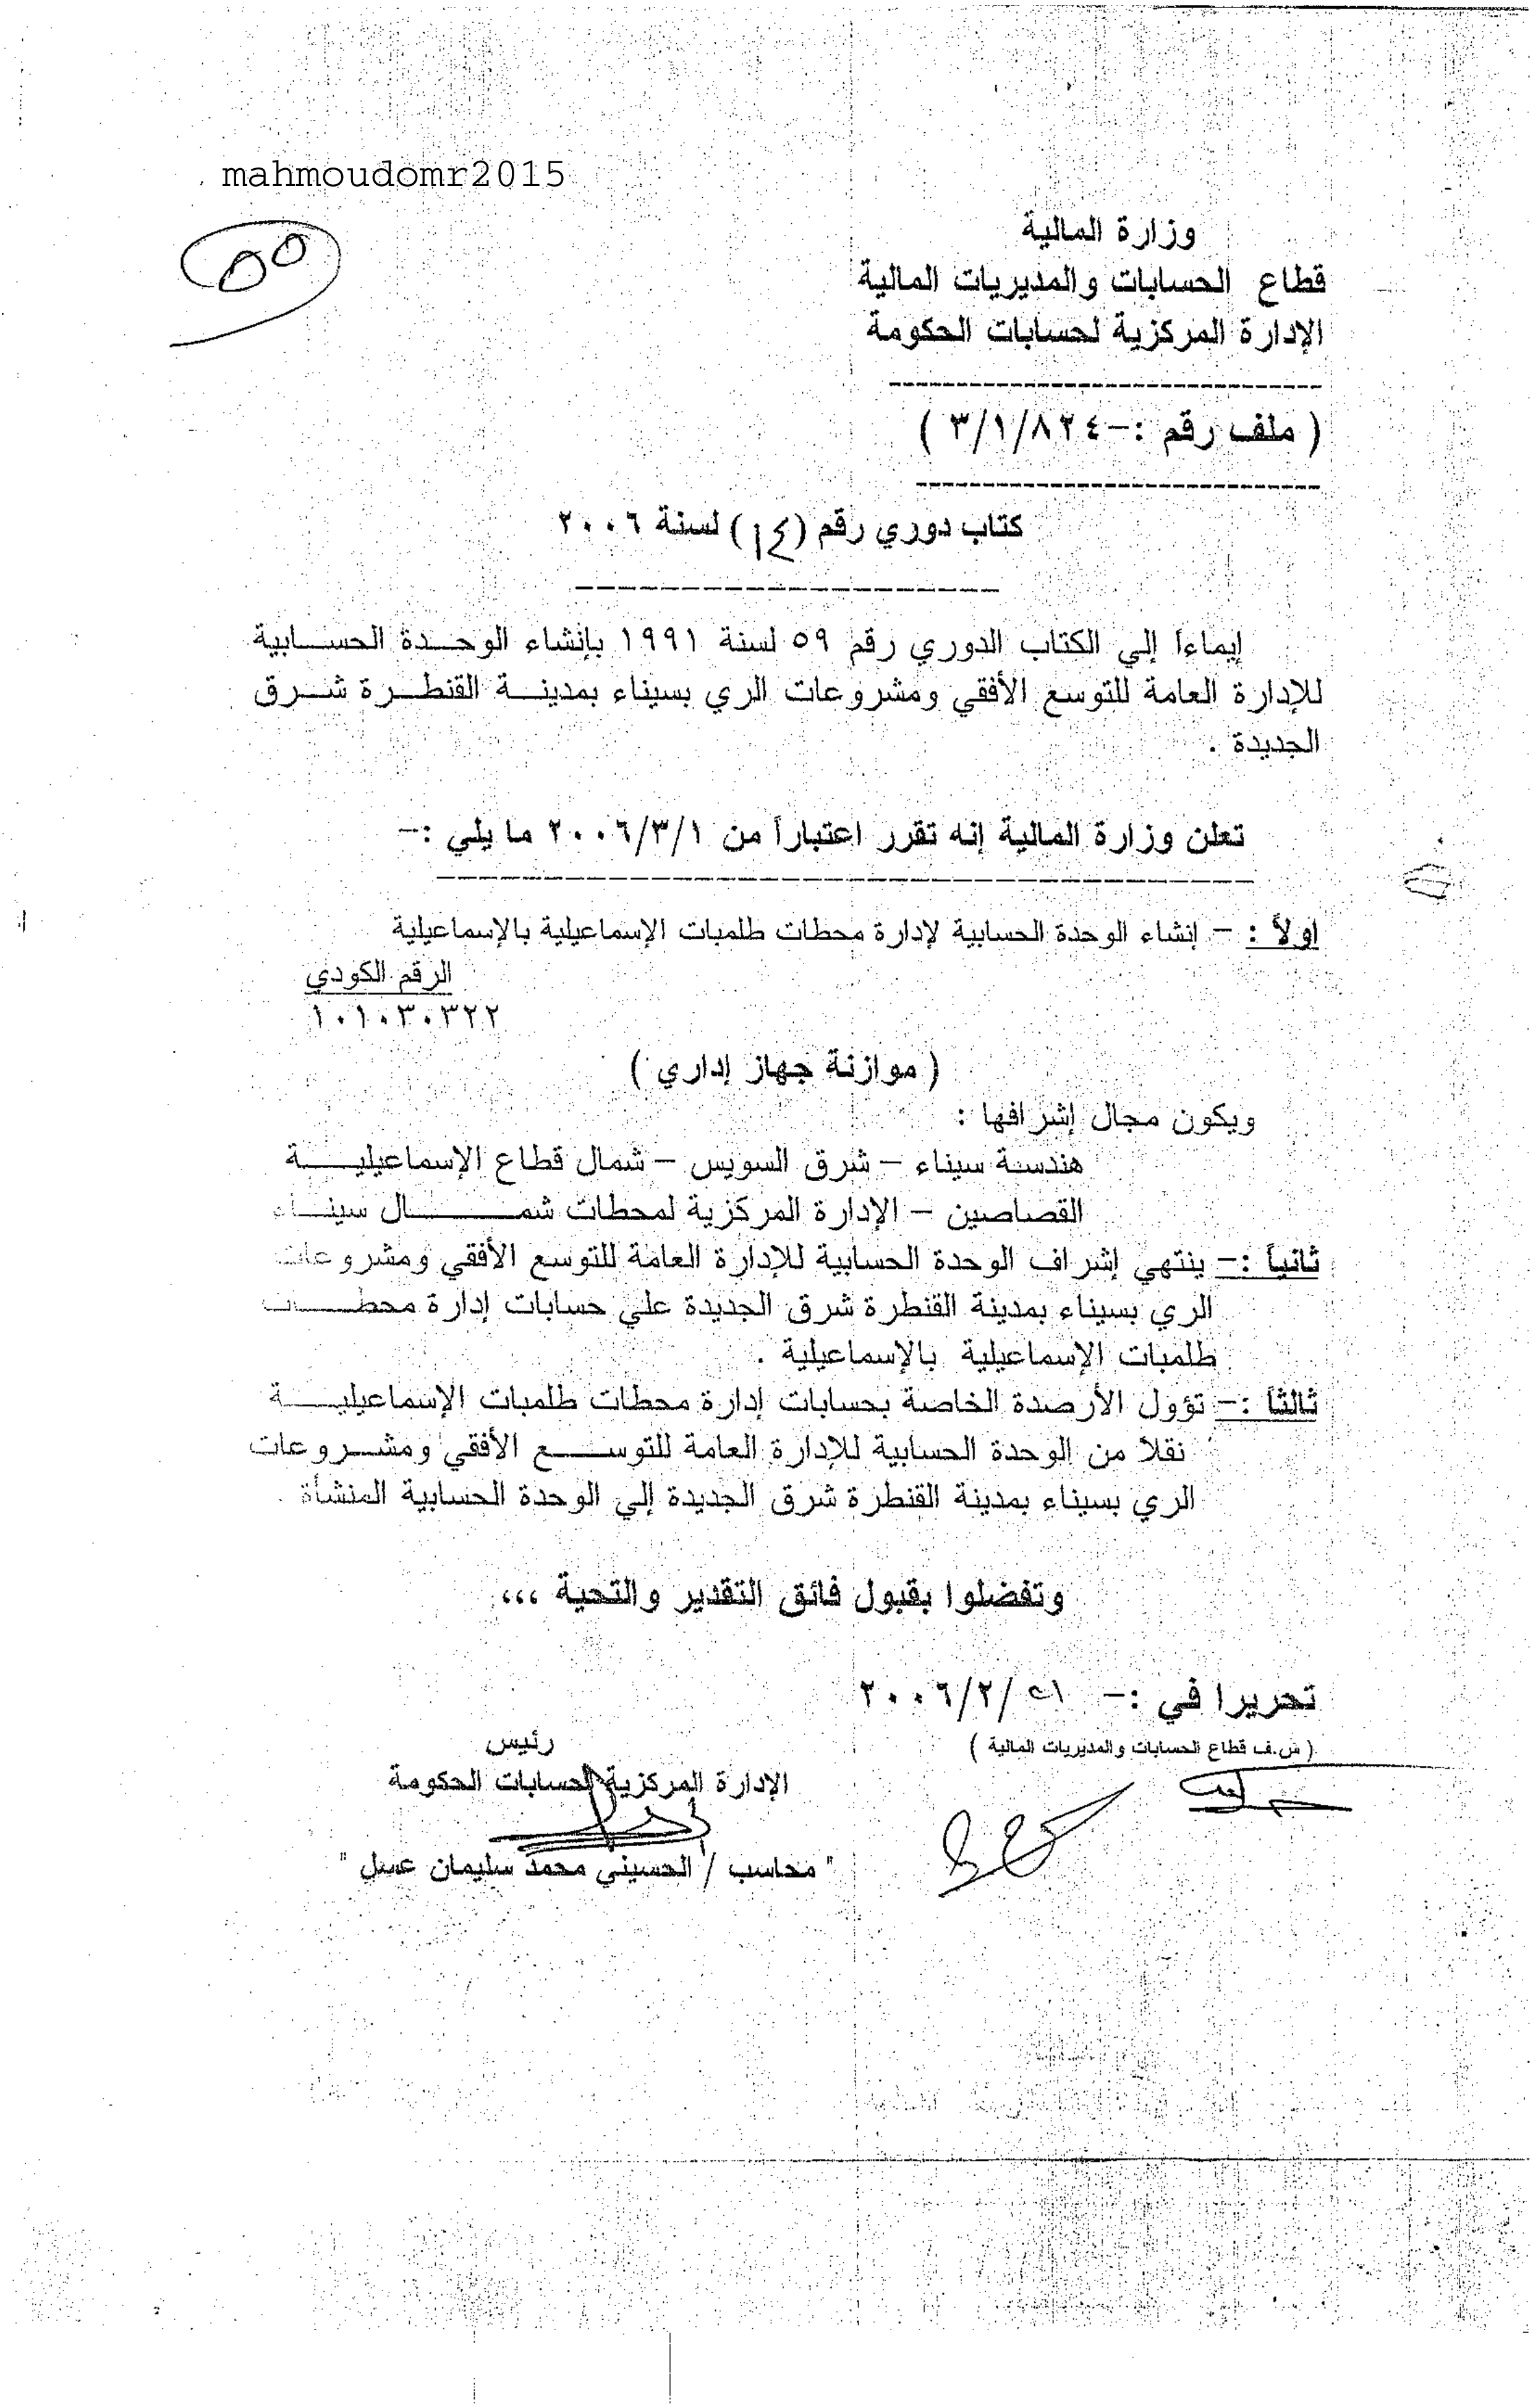 mahmoudomr2015
٥٥
وزارة المالية
قطاع الحسابات والمديريات المالية
الإدارة المركزية لحسابات الحكومة
( ملف رقم :- ٣/١/٨٢٤ )
كتاب دوري رقم (١٤) لسنة ٢٠٠٦
إيماءاً إلي الكتاب الدوري رقم ٥٩ لسنة ١٩٩١ بإنشاء الوحدة الحسابية
للإدارة العامة للتوسع الأفقي ومشروعات الري بسيناء بمدينة القنطرة شرق
الجديدة .
تعلن وزارة المالية إنه تقرر اعتباراً من ٢٠٠٦/٣/١ ما يلي :-
اولاً : - إنشاء الوحدة الحسابية لإدارة محطات طلمبات الإسماعيلية بالإسماعيلية
الرقم الكودي
١٠١٠٣٠٣٢٢
( موازنة جهاز إداري )
ويكون مجال إشرافها :
هندسة سيناء - شرق السويس - شمال قطاع الإسماعيلية
القصاصين - الإدارة المركزية لمحطات شمال سيناء
ثانياً :- ينتهي إشراف الوحدة الحسابية للإدارة العامة للتوسع الأفقي ومشروعات
الري بسيناء بمدينة القنطرة شرق الجديدة علي حسابات إدارة محطات
طلمبات الإسماعيلية بالإسماعيلية .
ثالثاً :- تؤول الأرصدة الخاصة بحسابات إدارة محطات طلمبات الإسماعيلية
نقلا من الوحدة الحسابية للإدارة العامة للتوسع الأفقي ومشروعات
الري بسيناء بمدينة القنطرة شرق الجديدة إلي الوحدة الحسابية المنشأة .
وتفضلوا بقبول فائق التقدير والتحية ،،،
تحريرا في :- ٢١/٢/٢٠٠٦
( ش.ف قطاع الحسابات والمديريات المالية )
رئيس
الإدارة المركزية لحسابات الحكومة
" محاسب / الحسيني محمد سليمان عسل "